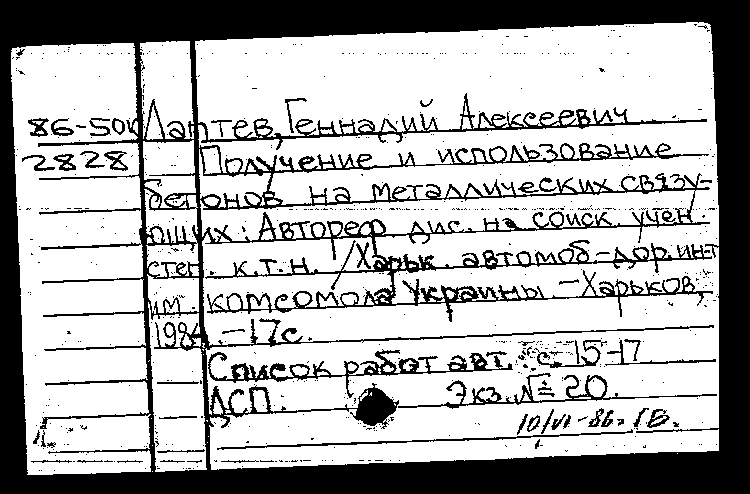 86-50к Лаптев, Геннадий Алексеевич
2828 Получение и использование
бетонов на металлических связу-
ющих: Автореф. дис. на соиск. учен.
степ. к.т.н. / Харьк. автомоб-дор. ин-т
им. комсомола Украины. - Харьков,
1984. - 17с.
Список работ авт. с. 15-17
ДСП. Экз. № 20.
10/VI-86.